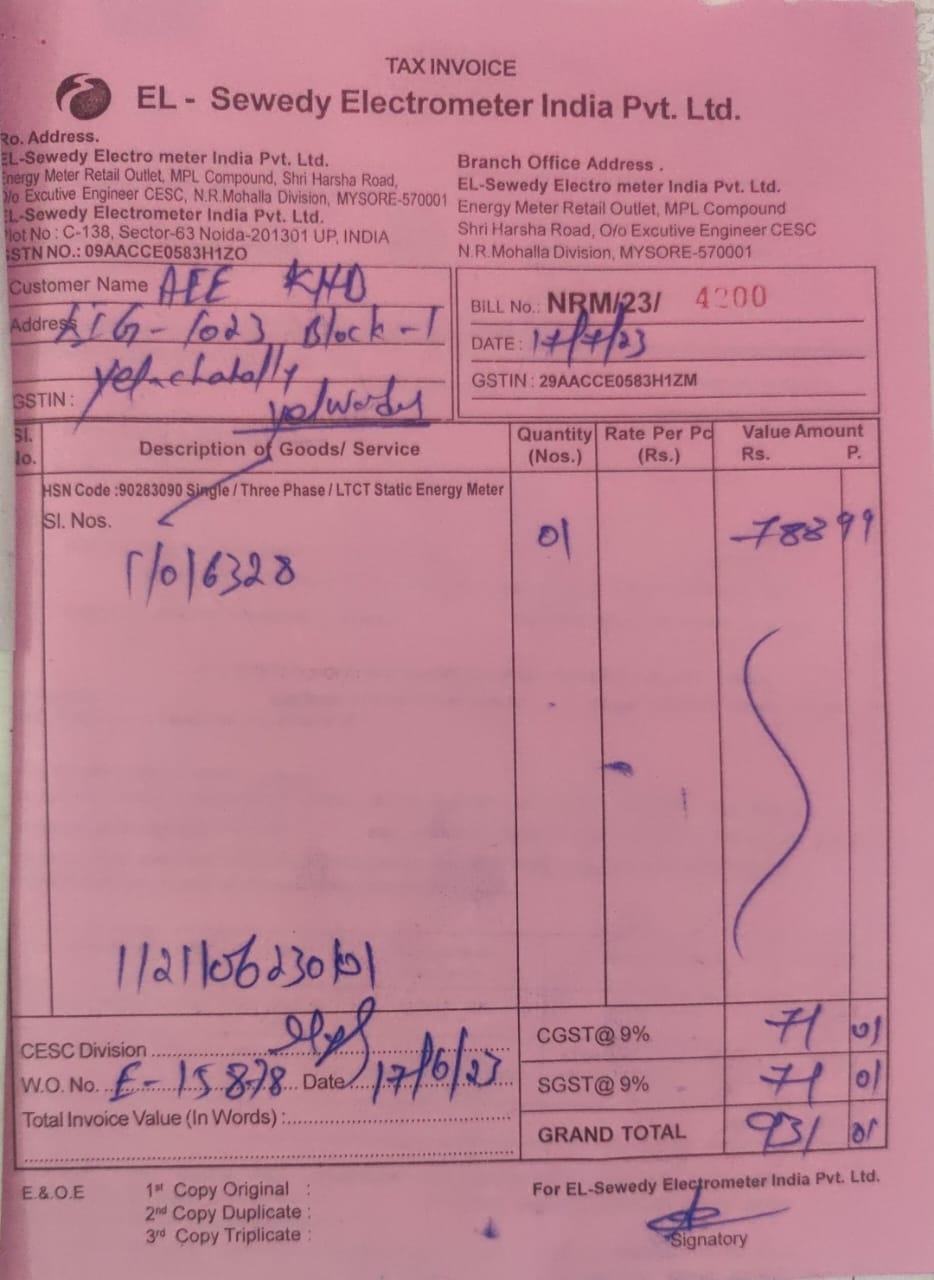 TAX INVOICE
EL - Sewedy Electrometer India Pvt. Ltd.
Ro. Address.
EL-Sewedy Electro meter India Pvt. Ltd.
Energy Meter Retail Outlet, MPL Compound, Shri Harsha Road,
O/o Excutive Engineer CESC, N.R.Mohalla Division, MYSORE-570001
EL-Sewedy Electrometer India Pvt. Ltd.
Plot No : C-138, Sector-63 Noida-201301 UP, INDIA
GSTN NO.: 09AACCE0583H1ZO
Branch Office Address .
EL-Sewedy Electro meter India Pvt. Ltd.
Energy Meter Retail Outlet, MPL Compound
Shri Harsha Road, O/o Excutive Engineer CESC
N.R.Mohalla Division, MYSORE-570001
Customer Name AEE KHD
Address 1023, Block-1
GSTIN :
BILL No.: NRM/23/ 4200
DATE : 17/7/23
GSTIN : 29AACCE0583H1ZM
Sl. No. Description of Goods/ Service Quantity (Nos.) Rate Per Pc (Rs.) Value Amount Rs. P.
HSN Code :90283090 Single / Three Phase / LTCT Static Energy Meter
Sl. Nos. 01 788 99
CESC Division
W.O. No. E-15878 Date 17/6/23
Total Invoice Value (In Words) :
CGST@ 9% 71 01
SGST@ 9% 71 01
GRAND TOTAL 931 01
E.&.O.E
1st Copy Original :
2nd Copy Duplicate :
3rd Copy Triplicate :
For EL-Sewedy Electrometer India Pvt. Ltd.
Signatory